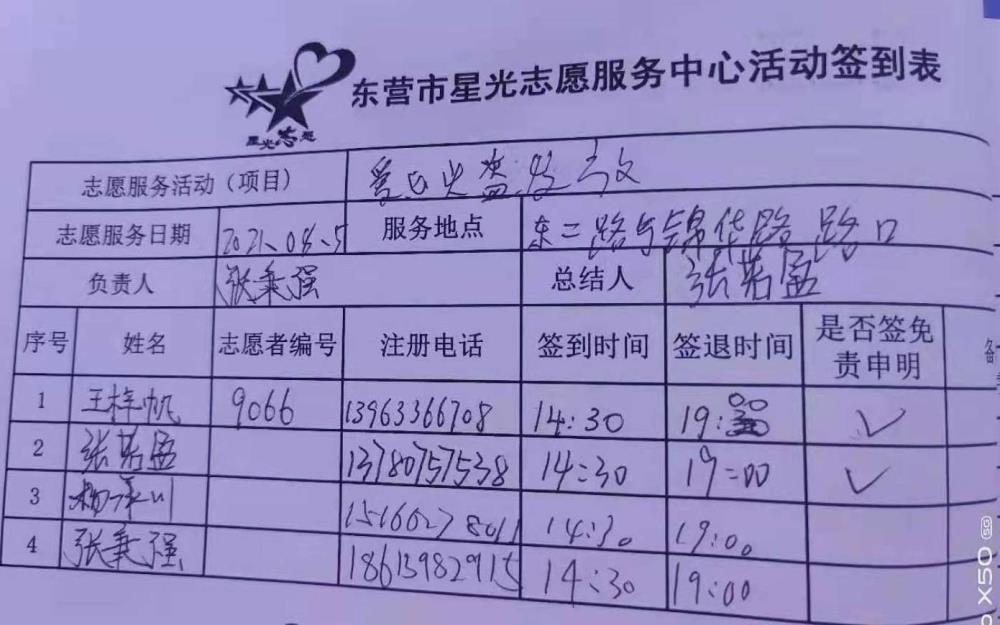 星光志愿
东营市星光志愿服务中心活动签到表
志愿服务活动（项目）
志愿服务日期 2021.08.5 服务地点 东二路与锦华路 路口
负责人 张秉强 总结人 张若孟
序号 姓名 志愿者编号 注册电话 签到时间 签退时间 是否签免责申明 备
1 王梓帆 9066 13963366708 14:30 19:00 ✓
2 张若孟 13780757538 14:30 19:00 ✓
3 15166278011 14:30 19:00
4 张秉强 18613982915 14:30 19:00
X50 5G